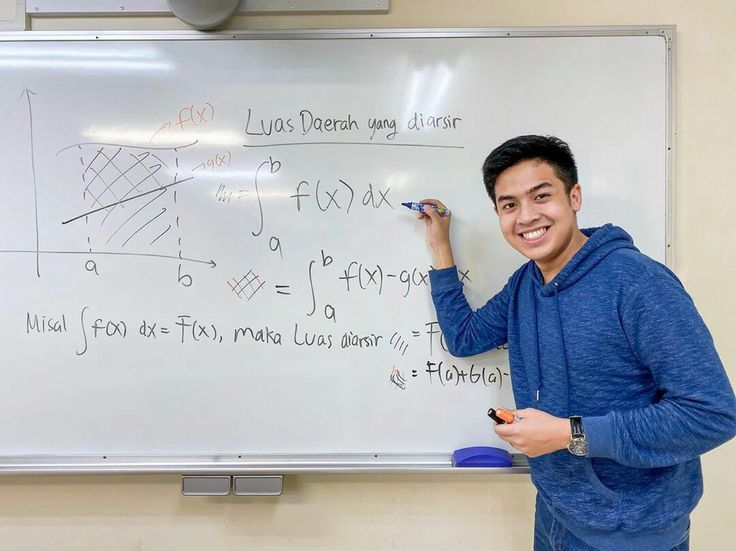 f(x)
g(x)
a
b
Luas Daerah yang diarsir
= ∫ₐᵇ f(x) dx
= ∫ₐᵇ f(x) - g(x)
Misal ∫ f(x) dx = F(x), maka Luas diarsir = F(
= F(a)+G(a)-